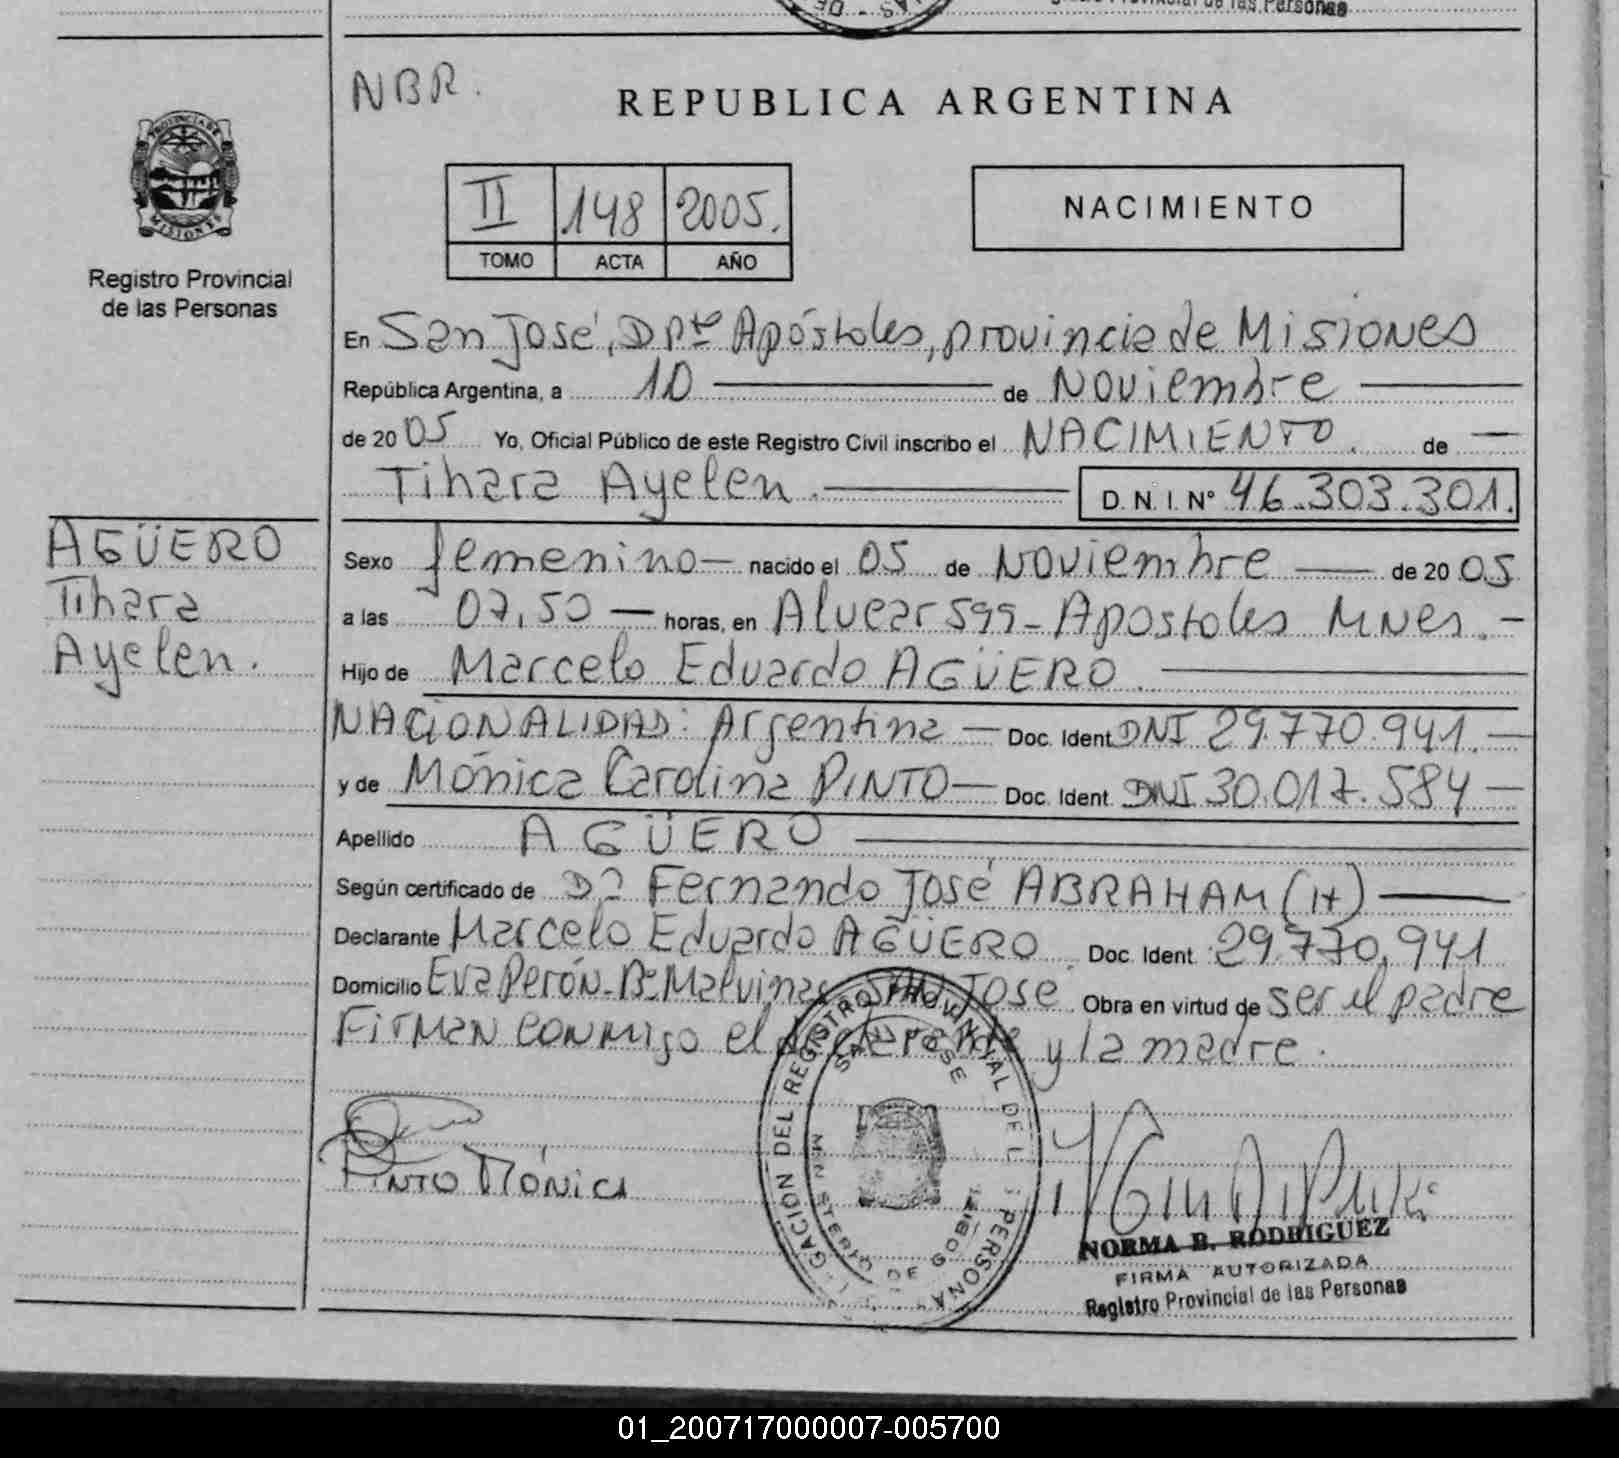 Registro Provincial de las Personas
NBR.
REPUBLICA ARGENTINA
PROVINCIA DE
MISIONES
Registro Provincial
de las Personas
II 148 2005.
TOMO ACTA AÑO
NACIMIENTO
En San José, Dpto Apóstoles, provincia de Misiones
República Argentina, a 10 de Noviembre
de 2005 Yo, Oficial Público de este Registro Civil inscribo el NACIMIENTO. de
Tihara Ayelen. D. N. I. N° 46.303.301.
AGÜERO
Tihara
Ayelen.
Sexo femenino nacido el 05 de Noviembre de 2005
a las 07,50 horas, en Alvear 599 - Apostoles Mnes. -
Hijo de Marcelo Eduardo AGÜERO
NACIONALIDAD: Argentina Doc. Ident DNI 29.770.941.
y de Mónica Carolina PINTO Doc. Ident. DNI 30.017.584
Apellido AGÜERO
Según certificado de Fernando José ABRAHAM (H)
Declarante Marcelo Eduardo AGÜERO Doc. Ident. 29.770.941
Domicilio Eva Perón - B° Malvinas SAN JOSE Obra en virtud de ser el padre
Firman conmigo el declarante y la madre.
PINTO MÓNICA
DEL REGISTRO PROVINCIAL DE
SAN JOSE
MINISTERIO DE
NORMA B. RODRIGUEZ
FIRMA AUTORIZADA
Registro Provincial de las Personas
01_200717000007-005700